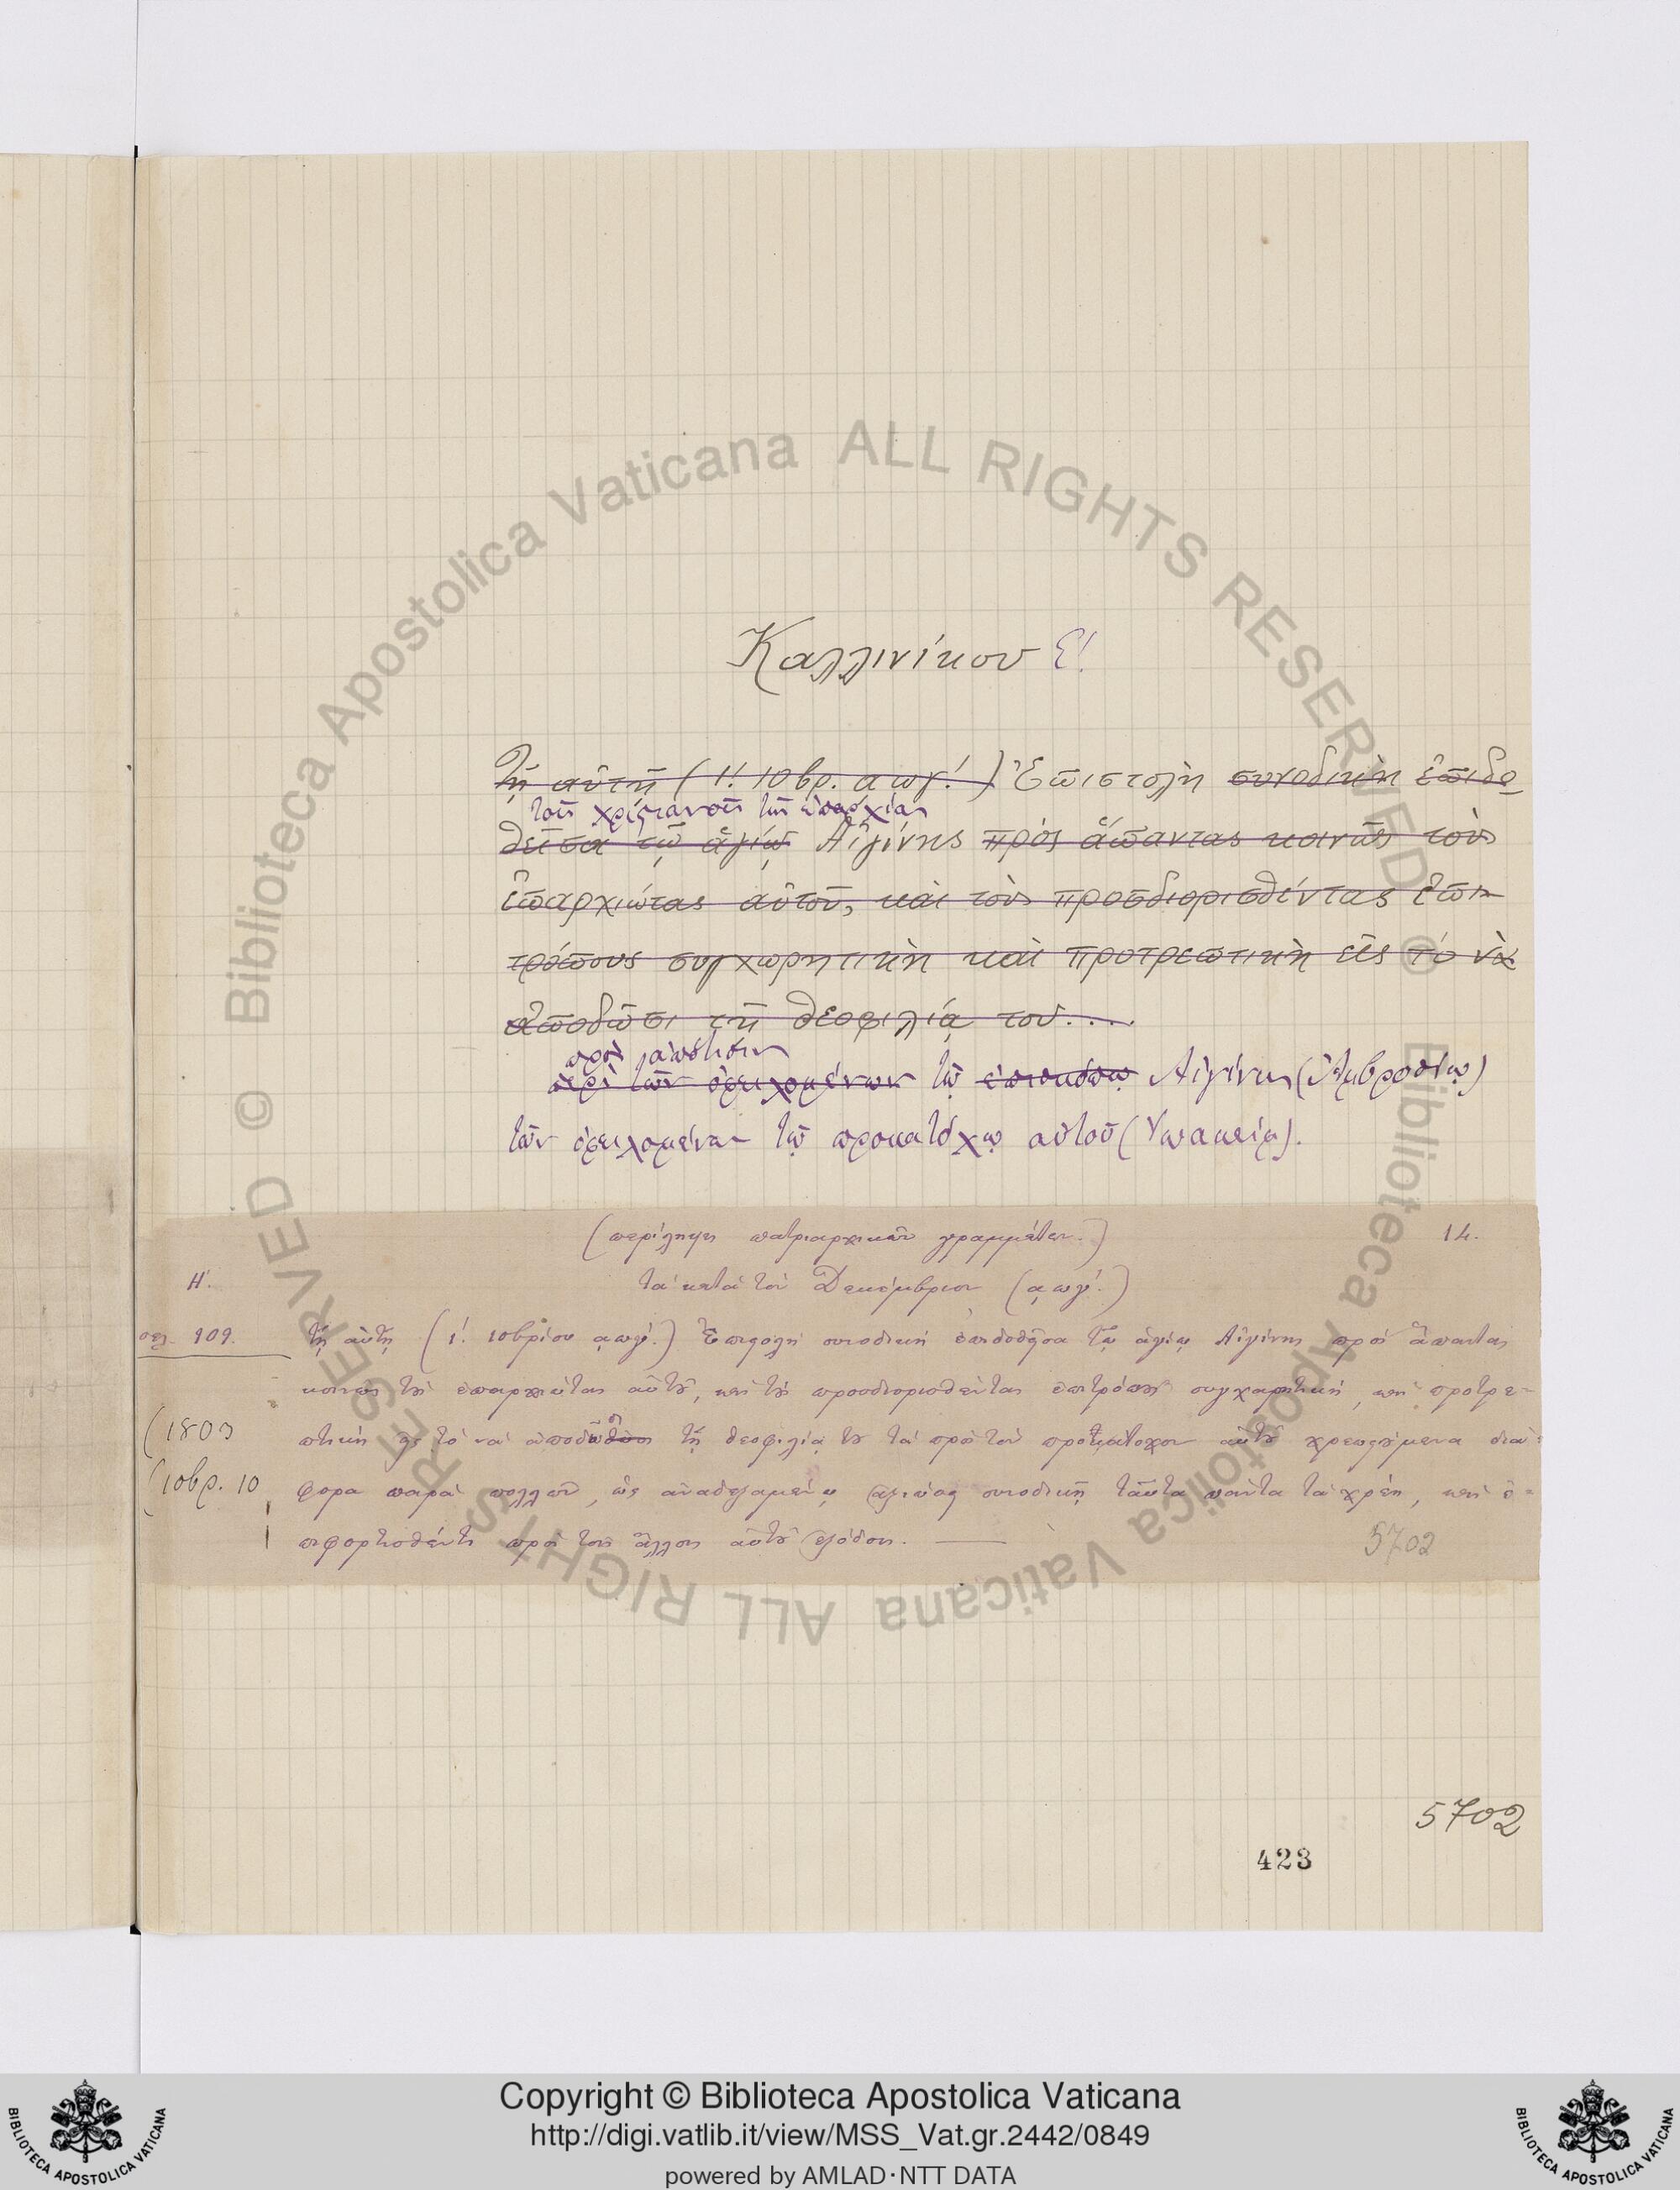 Καλλινίκου Ε!
Τῇ αὐτῇ (ι! 10βρ. αωγ!) Ἐπιστολὴ συνοδικὴ ἐπιδο
τοῖς χριστιανοῖς τῆς ἐπαρχίας
θεῖσα τῷ ἁγίῳ Αἰγίνης πρὸς ἅπαντας κοινῶς τοὺς
ἐπαρχιώτας αὐτοῦ, καὶ τοὺς προσδιορισθέντας ἐπι
τρόπους συγχωρητικὴ καὶ προτρεπτικὴ εἰς τὸ νὰ
ἀποδῶσι τῇ θεοφιλίᾳ του....
πρὸς ἀπότισιν
περὶ τῶν ὀφειλομένων τῷ ἐπισκόπῳ Αἰγίνης (Ἀμβροσίῳ)
τῶν ὀφειλομένων τῷ προκατόχῳ αὐτοῦ (Ἰωακείμ).
(περίληψις πατριαρχικῶν γραμμάτων.) 14.
Η'. τὰ κατὰ τὸν Δεκέμβριον (αωγ'.)
σελ. 109. τῇ αὐτῇ (ι! 10βρίου αωγ'.) Ἐπιστολὴ συνοδικὴ ἐπιδοθεῖσα τῷ ἁγίῳ Αἰγίνης πρὸς ἅπαντας
κοινῶς τοὺς ἐπαρχιώτας αὐτοῦ, καὶ τοὺς προσδιορισθέντας ἐπιτρόπους συγχωρητικὴ, καὶ προτρε-
(1803 πτικὴ εἰς τὸ νὰ ἀποδῶσι τῇ θεοφιλίᾳ του τὰ πρὸς τὸν προκάτοχον αὐτοῦ χρεωστούμενα διά-
(10βρ. 10 φορα παρὰ πολλῶν, ὡς ἀναδεξαμένῳ συνοδικῇ ταῦτα πάντα τὰ χρέη, καὶ ἐ-
πιφορτισθέντι πρὸς τοῖς ἄλλοις αὐτοῦ ἐξόδοις.
5702
5702
423
© Biblioteca Apostolica Vaticana ALL RIGHTS RESERVED
© Biblioteca Apostolica Vaticana ALL RIGHTS RESERVED
Copyright © Biblioteca Apostolica Vaticana
http://digi.vatlib.it/view/MSS_Vat.gr.2442/0849
powered by AMLAD·NTT DATA
BIBLIOTECA APOSTOLICA VATICANA
BIBLIOTECA APOSTOLICA VATICANA